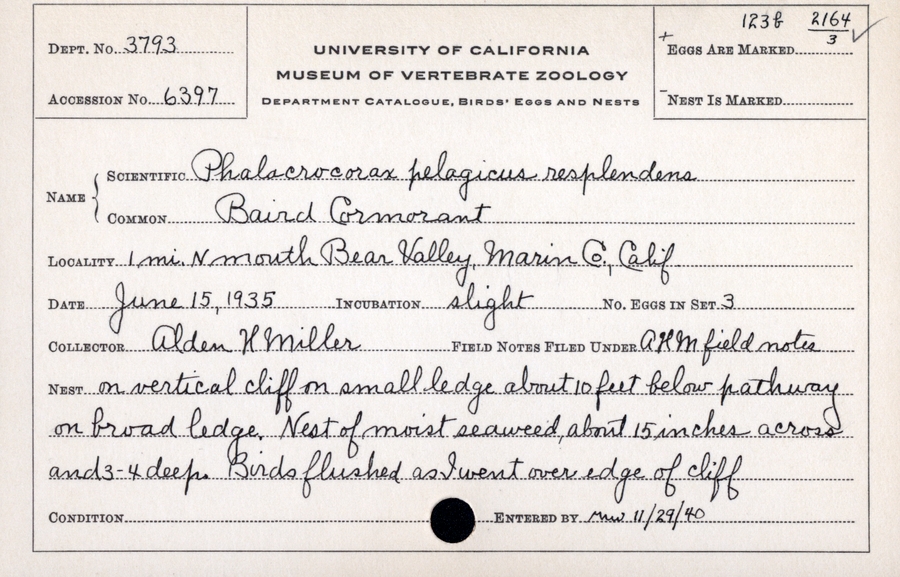 DEPT. NO. 3793
ACCESSION NO. 6397
UNIVERSITY OF CALIFORNIA
MUSEUM OF VERTEBRATE ZOOLOGY
DEPARTMENT CATALOGUE, BIRDS' EGGS AND NESTS
123b 2164/3 ✓
+ EGGS ARE MARKED
- NEST IS MARKED
NAME
SCIENTIFIC Phalacrocorax pelagicus resplendens
COMMON Baird Cormorant
LOCALITY 1 mi. N mouth Bear Valley, Marin Co., Calif
DATE June 15, 1935 INCUBATION slight NO. EGGS IN SET 3
COLLECTOR Alden H Miller FIELD NOTES FILED UNDER AHM field notes
NEST on vertical cliff on small ledge about 10 feet below pathway
on broad ledge. Nest of moist seaweed, about 15 inches across
and 3-4 deep. Birds flushed as I went over edge of cliff
CONDITION ENTERED BY 11/29/40